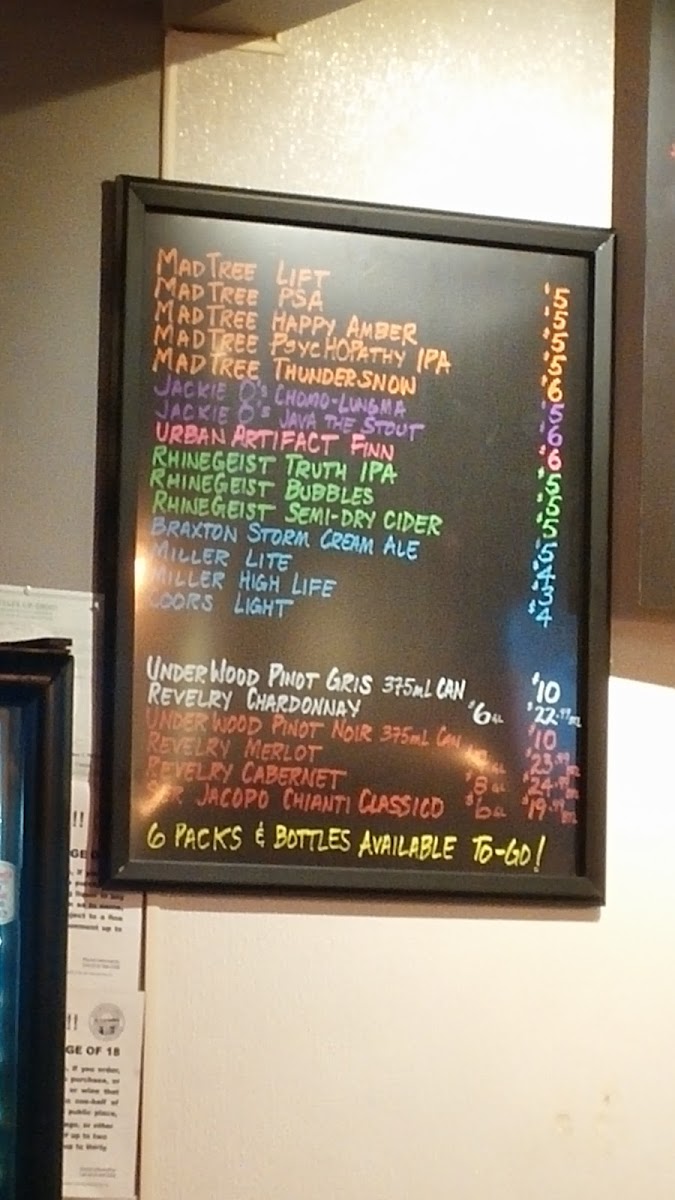 MADTREE LIFT $5
MADTREE PSA 5
MADTREE HAPPY AMBER 5
MADTREE PSYCHOPATHY IPA 5
MADTREE THUNDERSNOW 6
JACKIE O'S CHOMO-LUNGMA 5
JACKIE O'S JAVA THE STOUT 6
URBAN ARTIFACT FINN 6
RHINEGEIST TRUTH IPA 5
RHINEGEIST BUBBLES 5
RHINEGEIST SEMI-DRY CIDER 5
BRAXTON STORM CREAM ALE 5
MILLER LITE 4
MILLER HIGH LIFE 3
COORS LIGHT $4
UNDERWOOD PINOT GRIS 375mL CAN $10
REVELRY CHARDONNAY $6 GL $22.99 BTL
UNDERWOOD PINOT NOIR 375mL CAN $10
REVELRY MERLOT GL $23.99 BTL
REVELRY CABERNET $8 GL $24.99 BTL
SER JACOPO CHIANTI CLASSICO $6 GL $19.99 BTL
6 PACKS & BOTTLES AVAILABLE TO-GO!
!!
!!
GE OF 18
, if you order,
purchase, or
or wine that
one-half of
public place,
or either
up to two
up to thirty